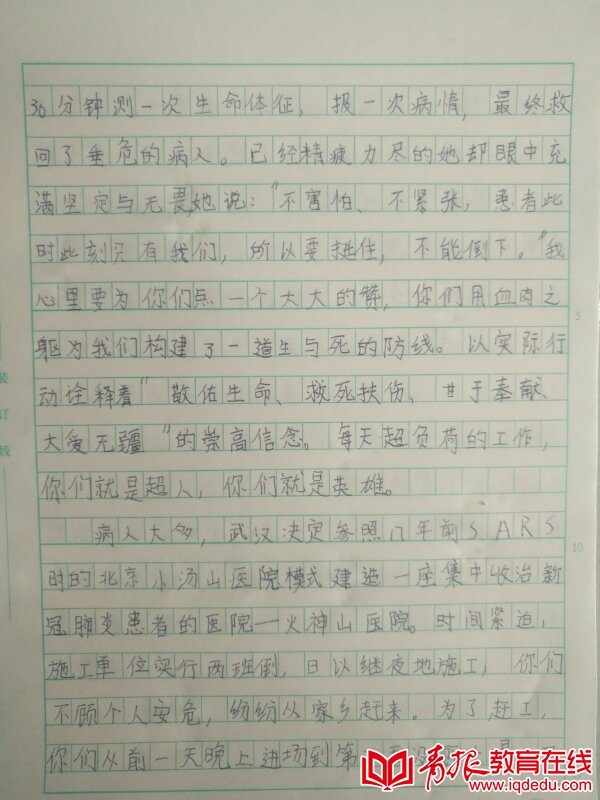 30分钟测一次生命体征，报一次病情，最终救
回了垂危的病人。已经精疲力尽的她却眼中充
满坚定与无畏，她说：“不害怕、不紧张，患者此
时此刻只有我们，所以要挺住，不能倒下。”我
心里要为你们点一个大大的赞，你们用血肉之
躯为我们构建了一道生与死的防线。以实际行
动诠释着“敬佑生命、救死扶伤、甘于奉献、
大爱无疆”的崇高信念。每天超负荷的工作，
你们就是超人，你们就是英雄。
病人太多，武汉决定参照17年前SARS
时的北京小汤山医院模式建造一座集中收治新
冠肺炎患者的医院—火神山医院。时间紧迫，
施工单位实行两班倒，日以继夜地施工，你们
不顾个人安危，纷纷从家乡赶来。为了赶工，
你们从前一天晚上进场到第
5
10
装
订
线
青报教育在线
www.iqdedu.com